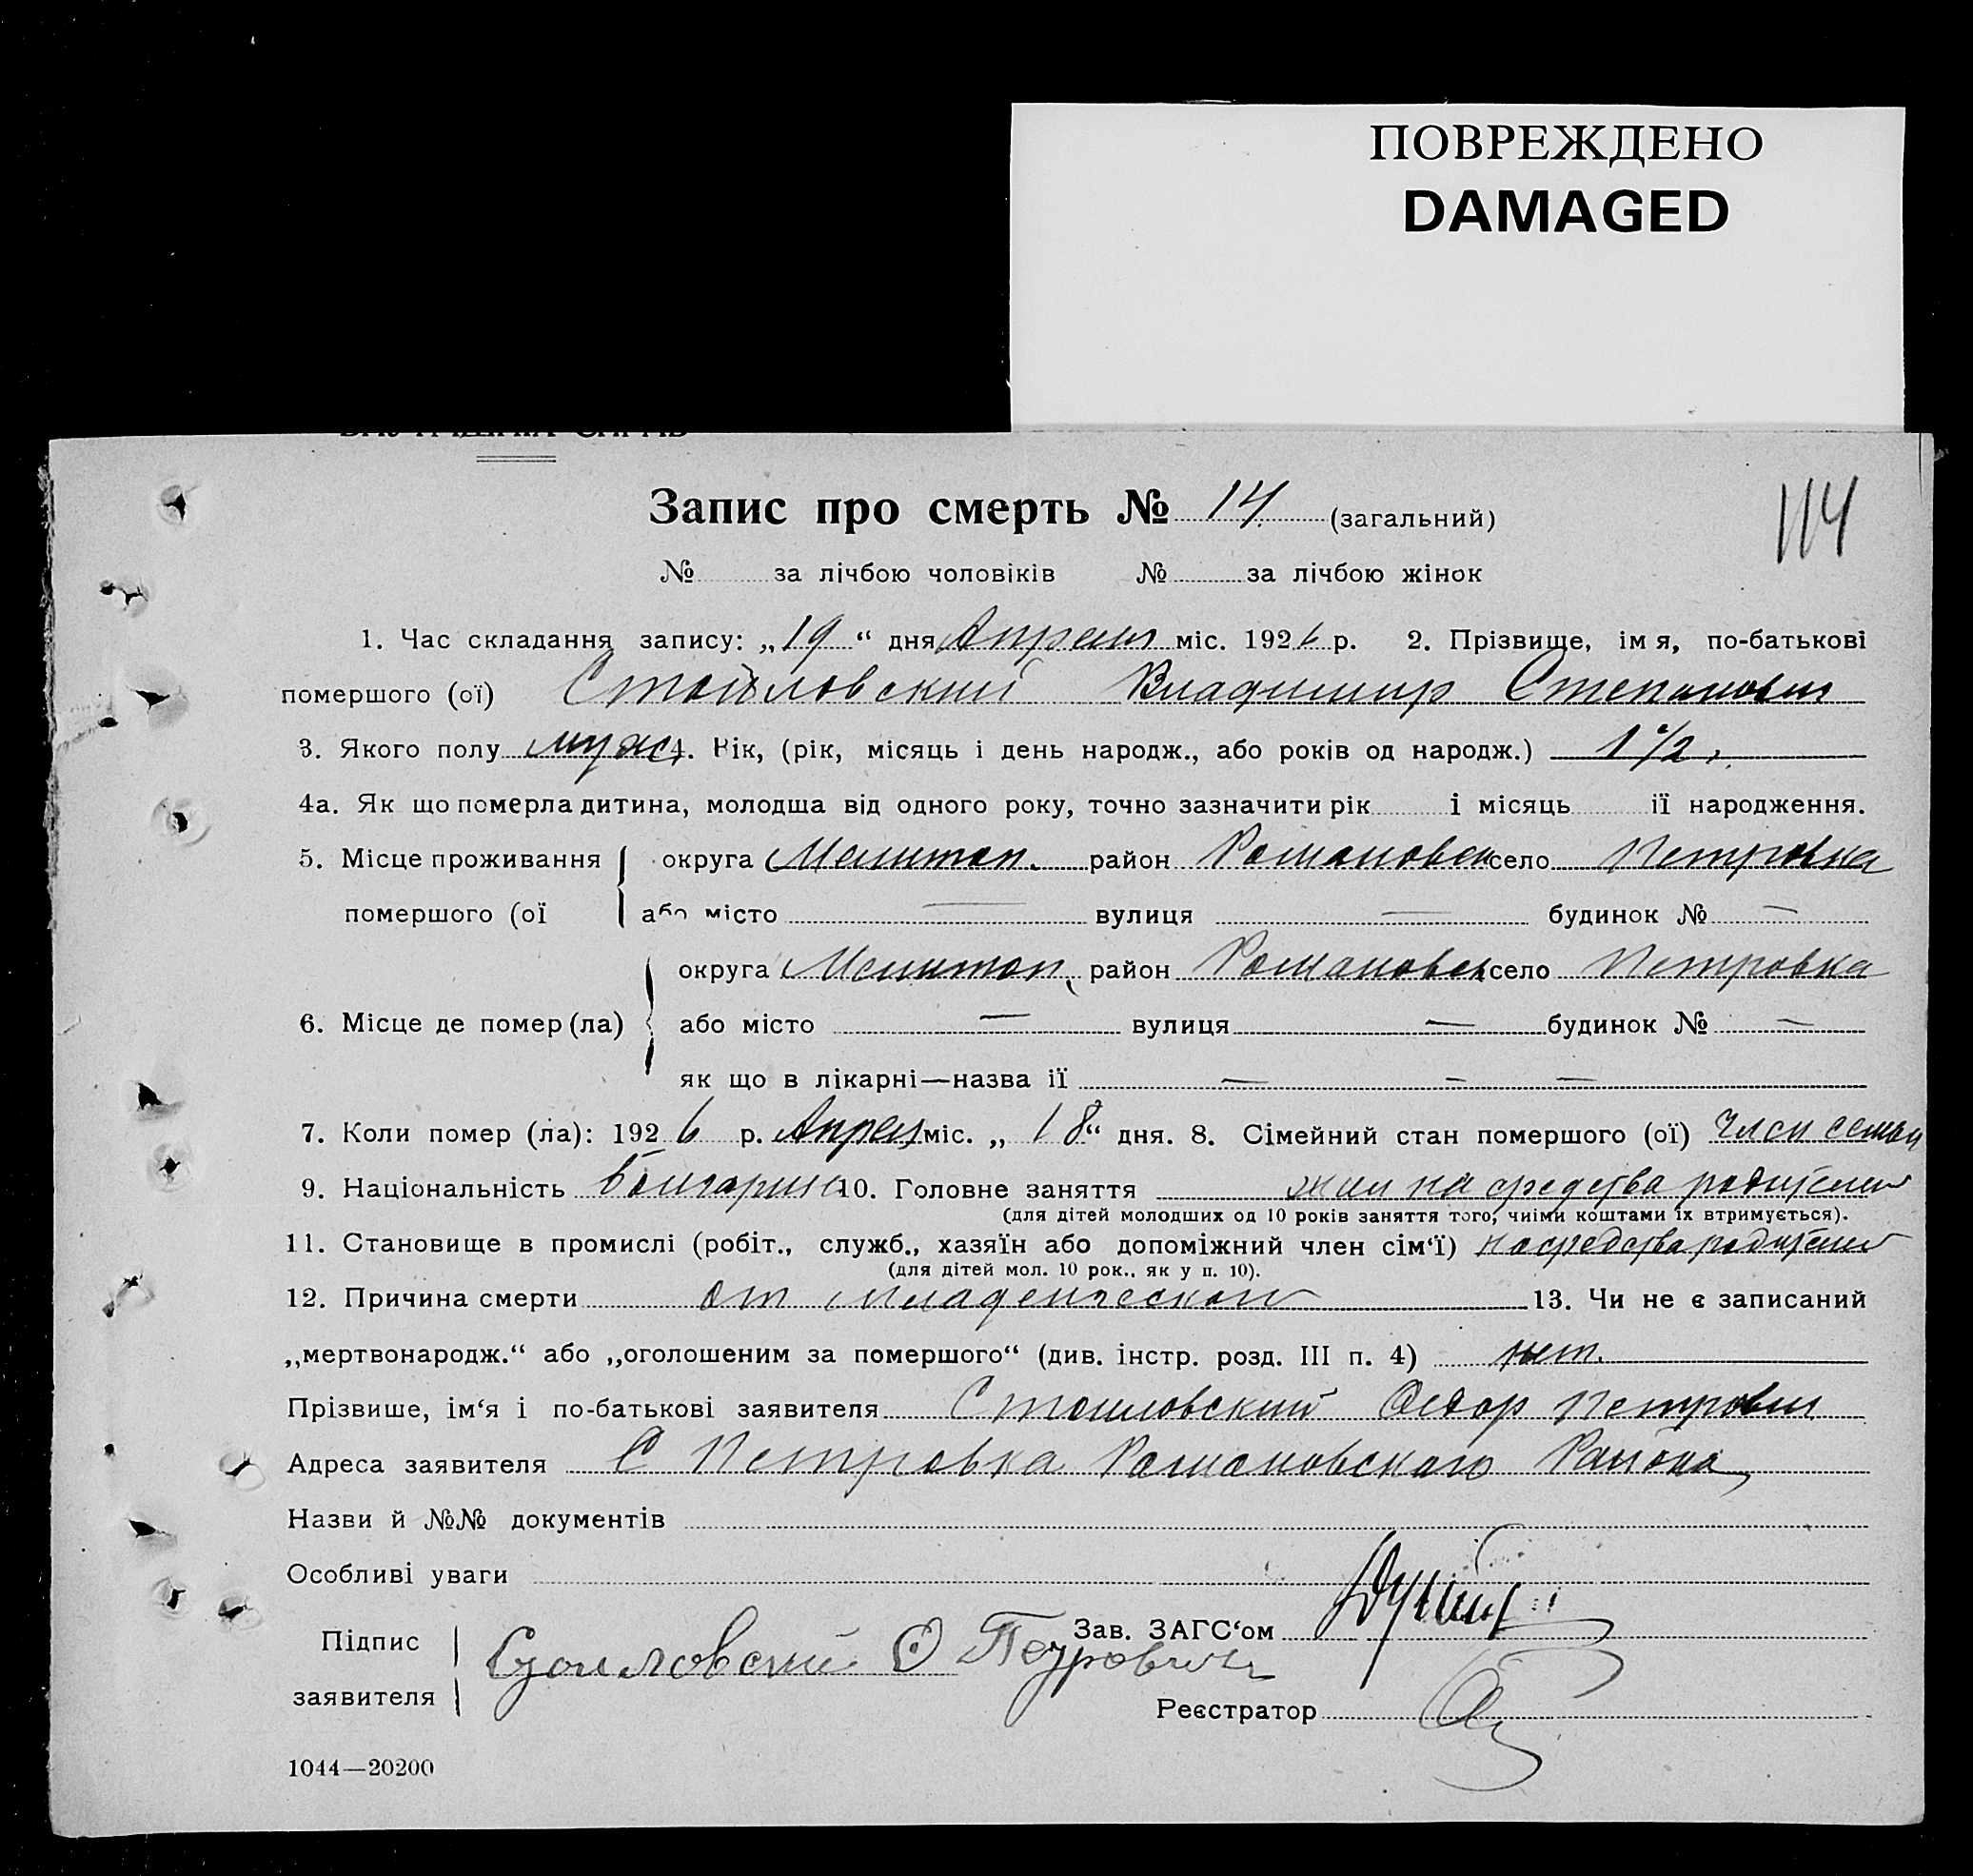 ПОВРЕЖДЕНО
DAMAGED
Запис про смерть № 14. (загальний)
114
№ за лічбою чоловіків № за лічбою жінок
1. Час складання запису: „19“ дня Апреля міс. 1926 р. 2. Прізвище, імя, по-батькові
помершого (ої) Стоиловский Владимир Степанович
3. Якого полу муж 4. Рік, (рік, місяць і день народж., або років од народж.) 1 1/2
4а. Як що померла дитина, молодша від одного року, точно зазначити рік і місяць її народження.
5. Місце проживання округа Мелитоп. район Романовск село Петровка
помершого (ої або місто — вулиця — будинок № —
округа Мелитоп. район Романовск село Петровка
6. Місце де помер(ла) або місто — вулиця — будинок № —
як що в лікарні—назва її — — —
7. Коли помер (ла): 1926 р. Апреля міс. „18“ дня. 8. Сімейний стан помершого (ої) член семьи
9. Національність болгарин 10. Головне заняття жил на средства родителей
(для дітей молодших од 10 років заняття того, чиїми коштами їх втримується).
11. Становище в промислі (робіт., служб., хазяїн або допоміжний член сім‘ї) на средства родителей
(для дітей мол. 10 рок., як у п. 10).
12. Причина смерти от младенческой 13. Чи не є записаний
„мертвонародж.“ або „оголошеним за помершого“ (див. інстр. розд. III п. 4) нет.
Прізвише, ім‘я і по-батькові заявителя Стоиловский Федор Петрович
Адреса заявителя С Петровка Романовского Района
Назви й №№ документів
Особливі уваги
Зав. ЗАГС‘ом
Підпис Стоиловский Ф Петрович
заявителя
Реєстратор
1044—20200